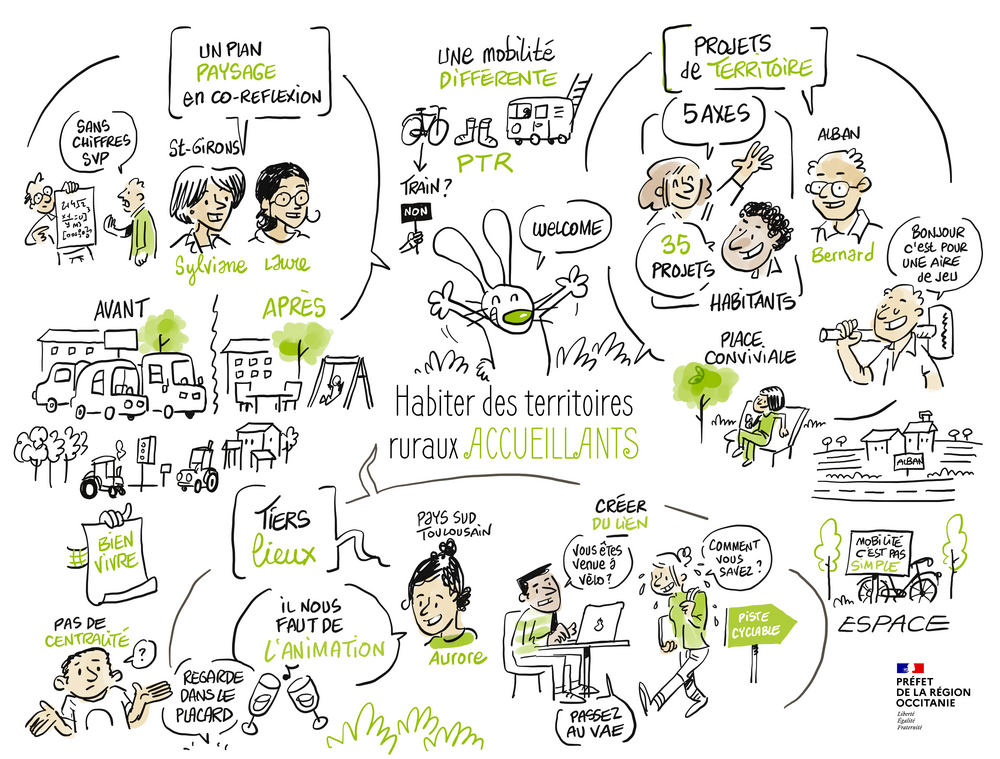 UN PLAN
PAYSAGE
en CO-REFLEXION
SANS
CHIFFRES
SVP
St-GIRONS
Sylviane Laure
AVANT
APRÈS
UNE mobilité
DIFFÉRENTE
PTR
TRAIN ?
NON
WELCOME
PROJETS
de TERRITOIRE
5 AXES
35
PROJETS
HABITANTS
ALBAN
Bernard
BONJOUR
C'EST POUR
UNE AIRE
de JEU
PLACE
CONVIVIALE
ALBAN
Habiter des territoires
ruraux ACCUEILLANTS
BIEN
VIVRE
TIERS
lieux
PAYS SUD
TOULOUSAIN
Aurore
IL NOUS
FAUT DE
L'ANIMATION
CRÉER
DU LIEN
VOUS ÊTES
VENUE À
VÉLO ?
COMMENT
VOUS
SAVEZ ?
PASSEZ
AU VAE
PISTE
CYCLABLE
MOBILITÉ
C'EST PAS
SIMPLE
ESPACE
PAS DE
CENTRALITÉ
?
REGARDE
DANS LE
PLACARD
PRÉFET
DE LA RÉGION
OCCITANIE
Liberté
Égalité
Fraternité